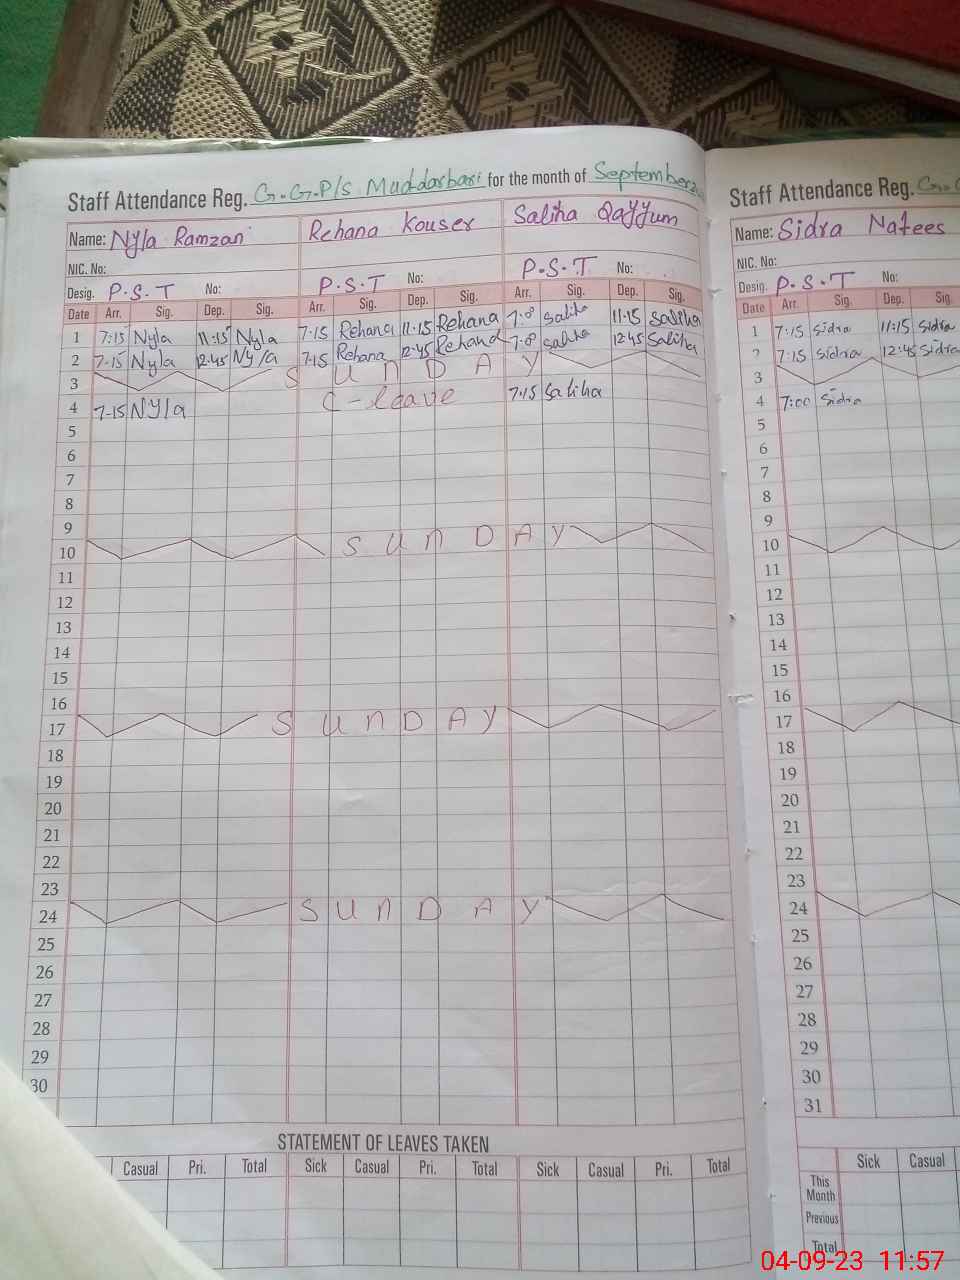 Staff Attendance Reg. G.G.P/S Muddarbari for the month of September
Name: Nyla Ramzan Rehana Kouser Saliha Qayyum
NIC. No:
Desig. P.S.T No: P.S.T No: P.S.T No:
Date Arr. Sig. Dep. Sig. Arr. Sig. Dep. Sig. Arr. Sig. Dep. Sig.
1 7:15 Nyla 11:15 Nyla 7:15 Rehana 11:15 Rehana 7:8 Saliha 11:15 Saliha
2 7-15 Nyla 12:45 Nyla 7:15 Rehana 12:45 Rehana 7:8 Saliha 12:45 Saliha
3 SUNDAY
4 7-15 Nyla C-leave 7:15 Saliha
5
6
7
8
9
10 SUNDAY
11
12
13
14
15
16
17 SUNDAY
18
19
20
21
22
23
24 SUNDAY
25
26
27
28
29
30
STATEMENT OF LEAVES TAKEN
Casual Pri. Total Sick Casual Pri. Total Sick Casual Pri. Total
Staff Attendance Reg. G.G
Name: Sidra Nafees
NIC. No:
Desig. P.S.T
Date Arr. Sig. Dep. Sig.
1 7:15 Sidra 11:15 Sidra
2 7:15 Sidra 12:45 Sidra
3
4 7:00 Sidra
5
6
7
8
9
10
11
12
13
14
15
16
17
18
19
20
21
22
23
24
25
26
27
28
29
30
31
Sick Casual
This Month
Previous
Total
04-09-23 11:57